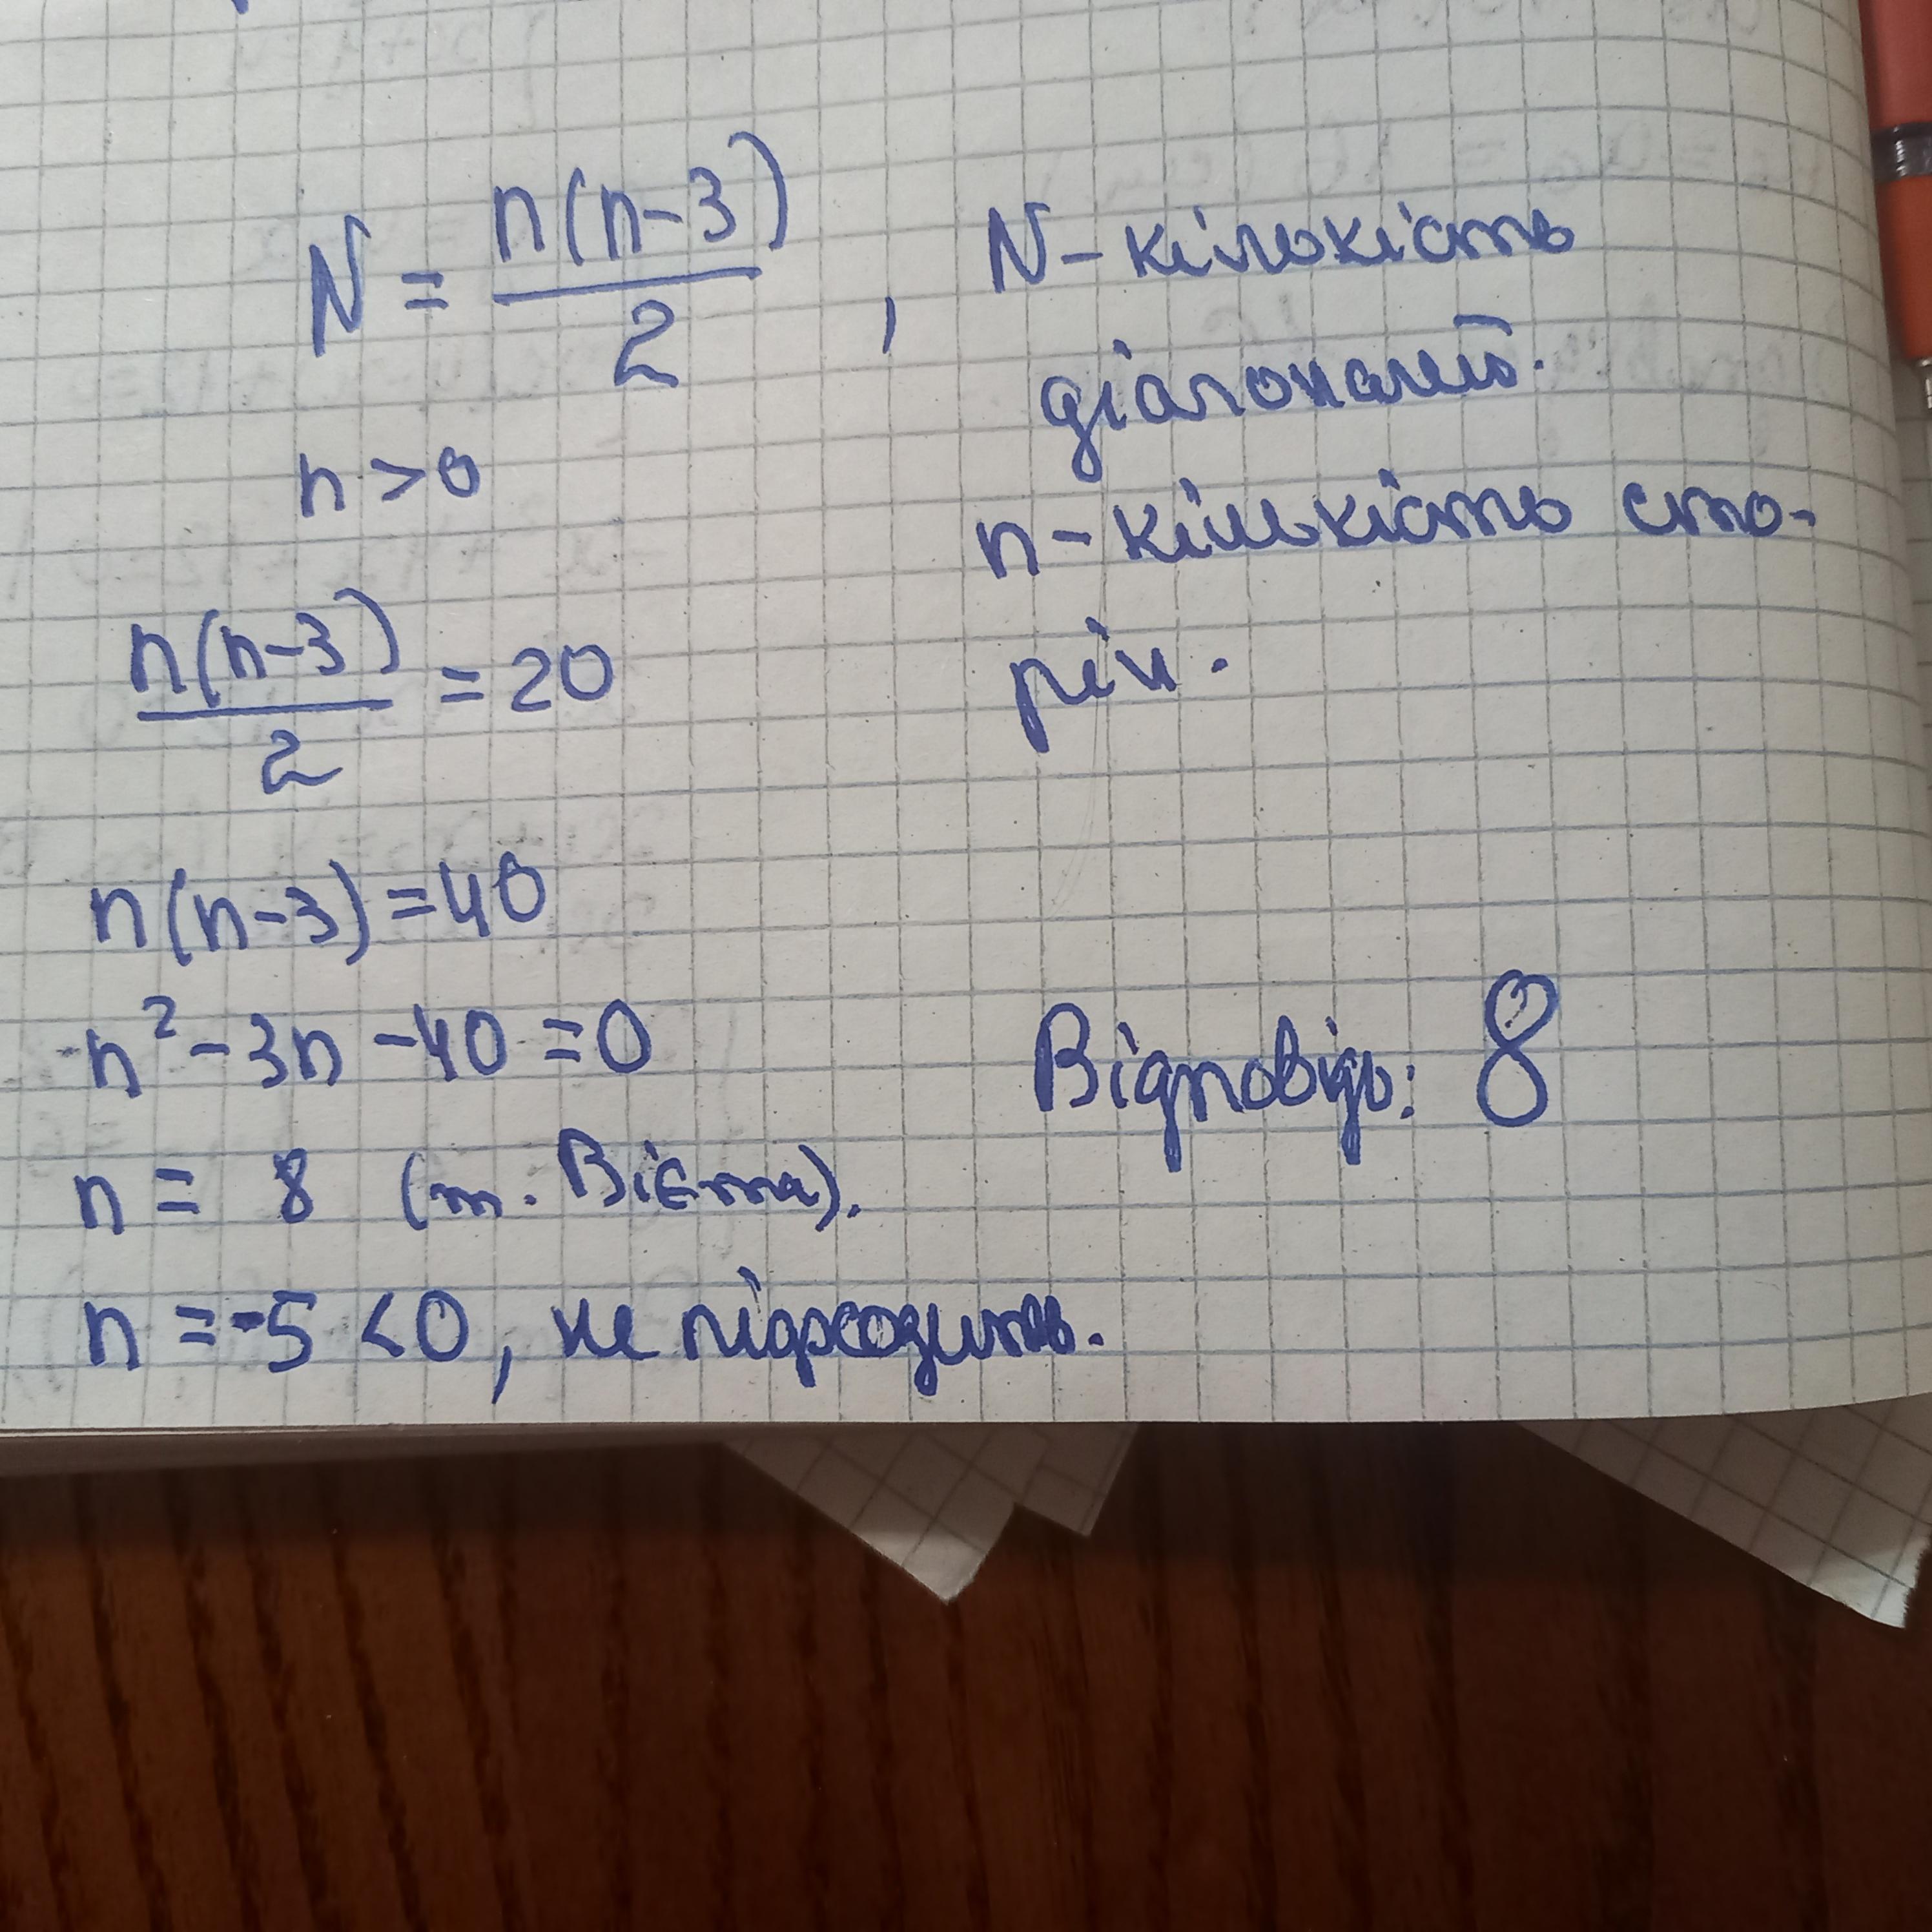 N = n(n-3)/2 , N - кількість
діагоналей.
n > 0
n - кількість сто-
рін.
n(n-3)/2 = 20
n(n-3) = 40
n² - 3n - 40 = 0
Відповідь: 8
n = 8 (т. Вієтта).
n = -5 < 0, не підходить.